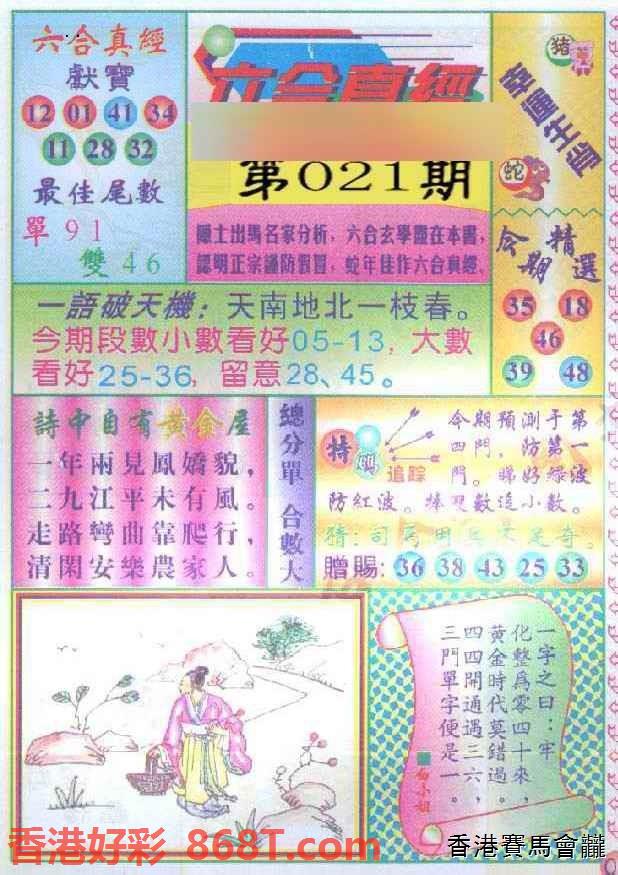 六合真經
獻寶
12 01 41 34
11 28 32
最佳尾數
單 91
雙 46
六合真經
第021期
隱士出馬名家分析，六合玄學盡在本書，
認明正宗謹防假冒，蛇年佳作六合真經。
猪
蛇
今期精選
35 18
46
39 48
一語破天機：天南地北一枝春。
今期段數小數看好05-13，大數
看好25-36，留意28、45。
詩中自有黃金屋
一年兩見鳳嬌貌，
二九江平未有風。
走路彎曲靠爬行，
清閑安樂農家人。
總分單 合數大
特碼
追踪
今期預測于第
四門，防第一
門。睇好綠波
防紅波。捧雙數追小數。
贈賜：36 38 43 25 33
一字之曰：牢
化整爲零四十來，
黃金時代莫錯過。
四四開通遇三六，
三門單字便是一。
白小姐
香港好彩 868T.com
香港賽馬會